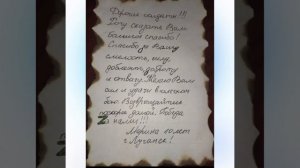 Дорогие солдаты!!!
Хочу сказать Вам
большое спасибо!
Спасибо за Вашу
смелость, силу,
доблесть, доброту
и отвагу. Желаю Вам
сил и удачи в нелегком
бою. Возвращайтесь
поскорее домой. Победа
Zа нами!!!
Марина 10 лет
г. Луганск!